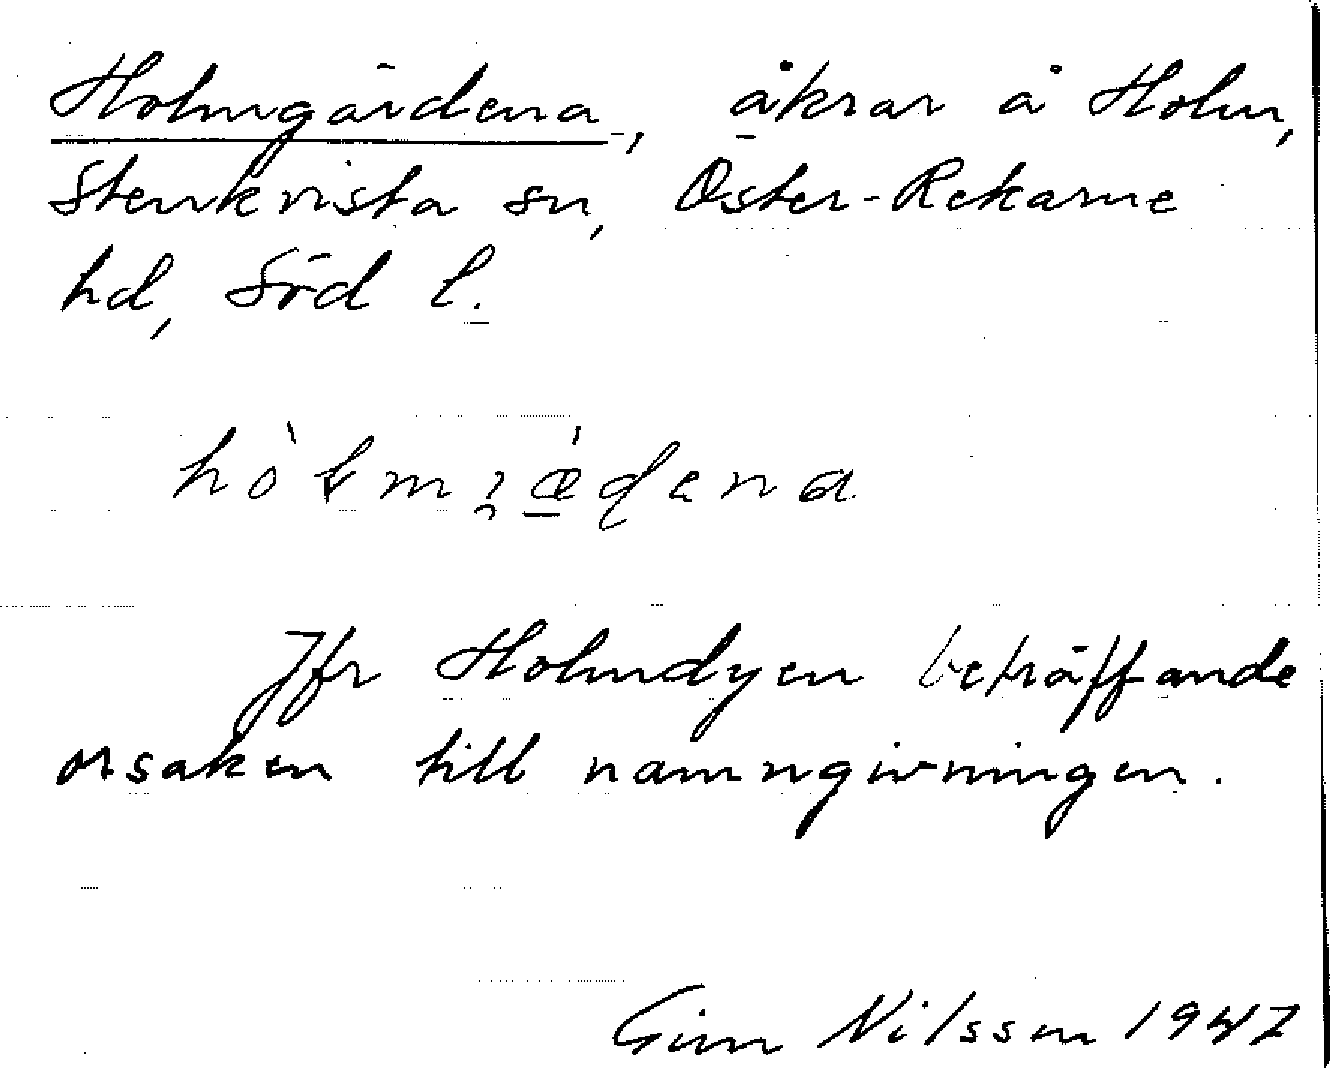 Holmgärdena, åkrar å Holm,
Stenkvista sn, Öster-Rekarne
hd, Söd l.
Jfr Holmdyen beträffande
orsaken till namngivningen.
Nilsson 1947